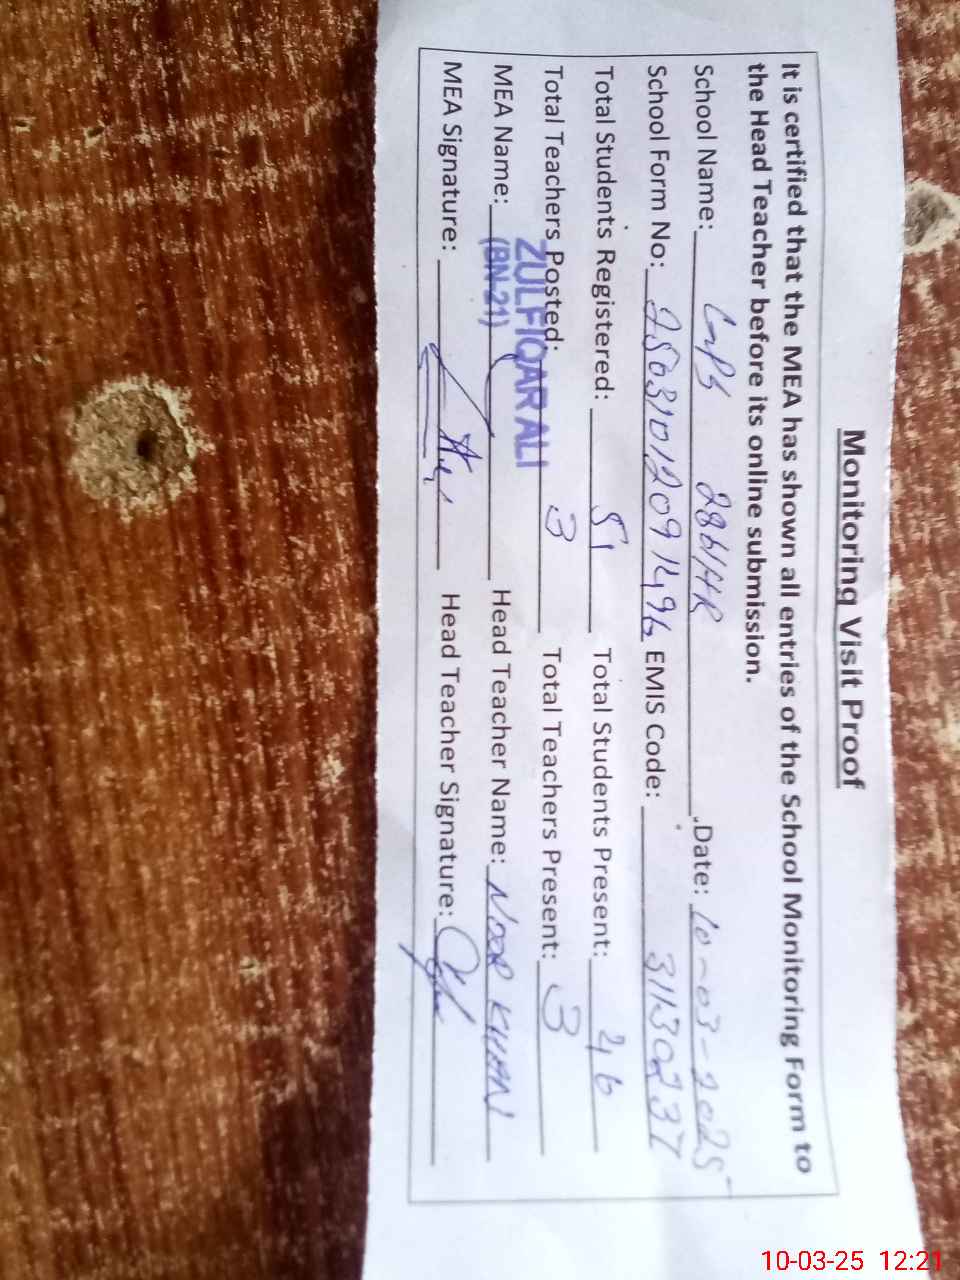 Monitoring Visit Proof
It is certified that the MEA has shown all entries of the School Monitoring Form to
the Head Teacher before its online submission.
School Name: GPS 286/HR Date: 10-03-2025
School Form No: EMIS Code: 31130237
Total Students Registered: 51 Total Students Present: 46
Total Teachers Posted: 3 Total Teachers Present: 3
ZULFIQAR ALI
(BN-21)
MEA Name: Head Teacher Name: NOOR KHAN
MEA Signature: Head Teacher Signature:
10-03-25 12:21